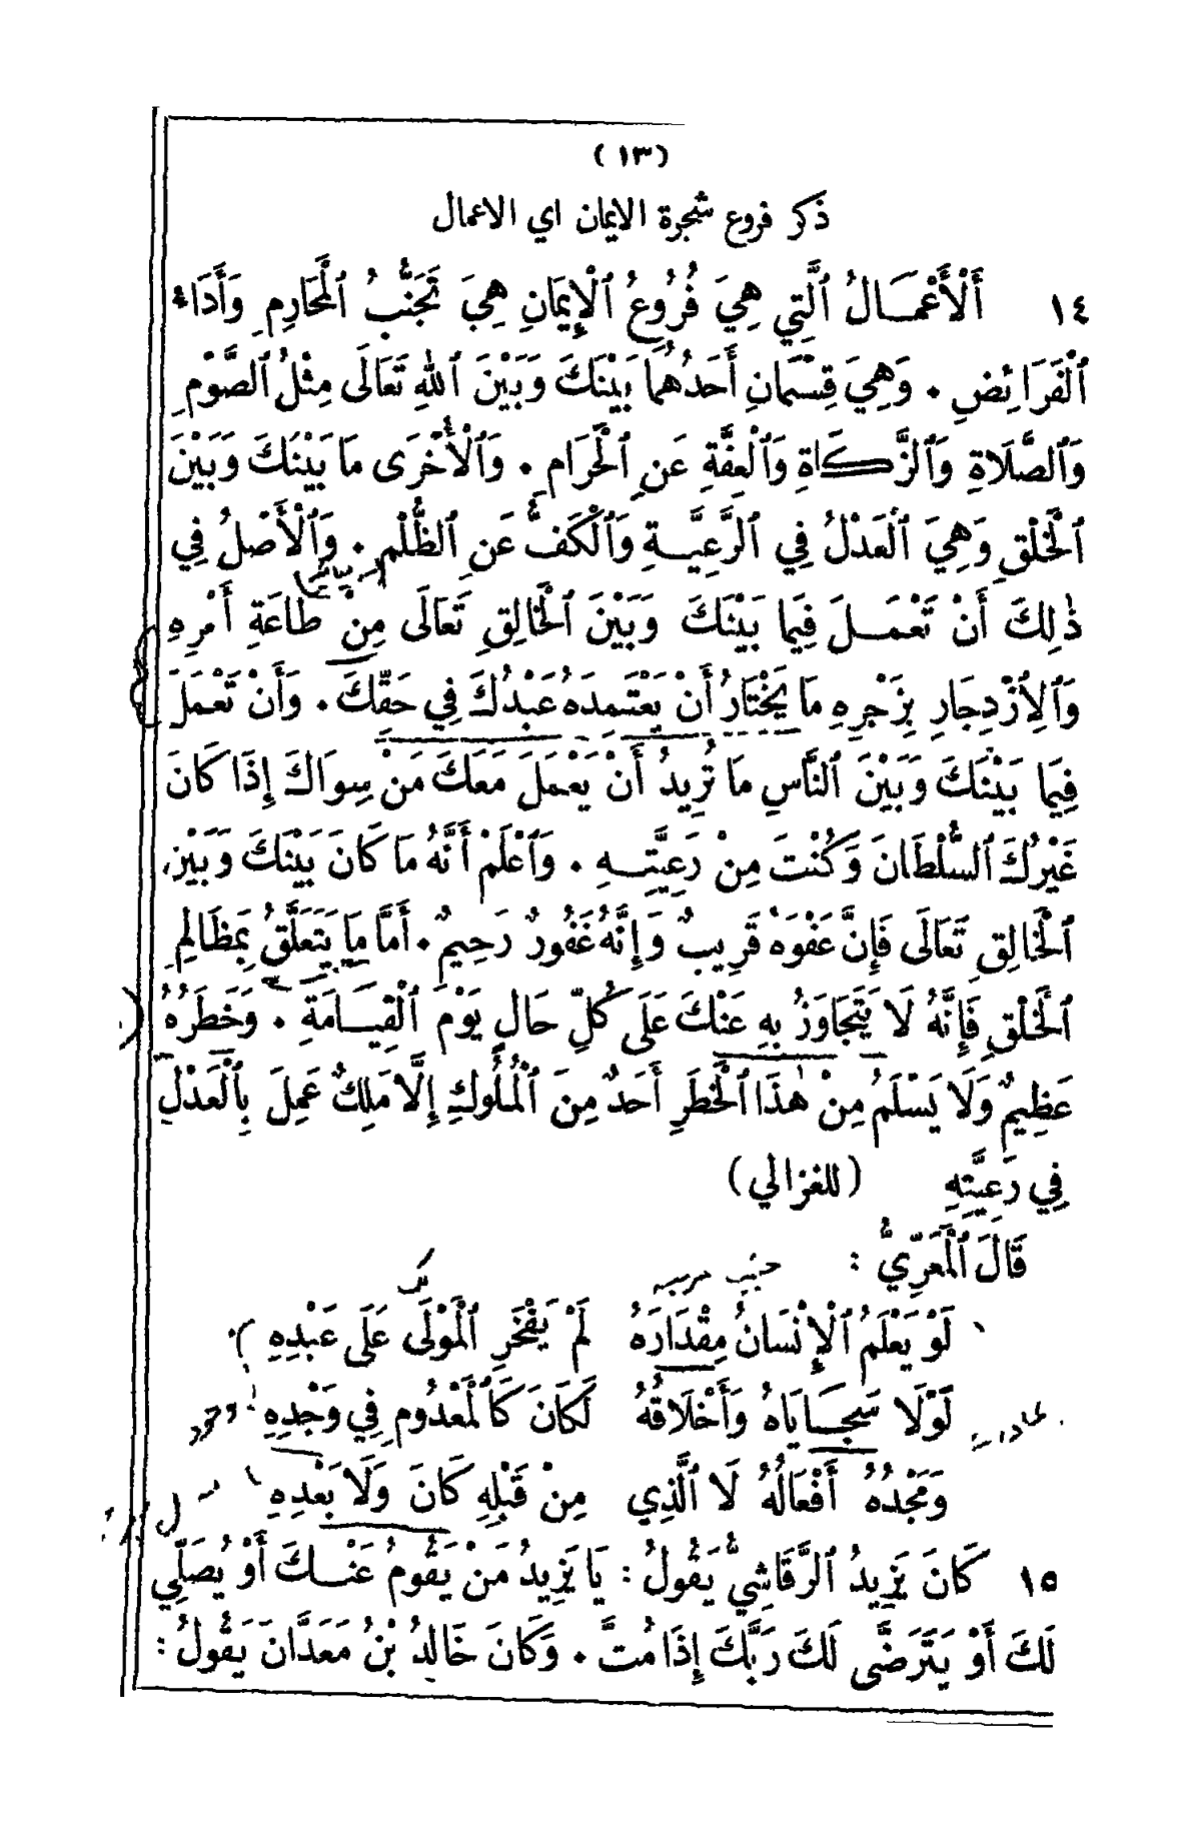 (١٣)
ذكر فروع شجرة الايمان اي الاعمال
١٤ أَلْأَعْمَالُ ٱلَّتِي هِيَ فُرُوعُ ٱلْإِيمَانِ هِيَ تَجَنُّبُ ٱلْمَحَارِمِ وَأَدَاءُ
ٱلْفَرَائِضِ . وَهِيَ قِسْمَانِ أَحَدُهُمَا بَيْنَكَ وَبَيْنَ ٱللهِ تَعَالَى مِثْلُ ٱلصَّوْمِ
وَٱلصَّلَاةِ وَٱلزَّكَاةِ وَٱلْعِفَّةِ عَنِ ٱلْحَرَامِ . وَٱلْأُخْرَى مَا بَيْنَكَ وَبَيْنَ
ٱلْخَلْقِ وَهِيَ ٱلْعَدْلُ فِي ٱلرَّعِيَّةِ وَٱلْكَفُّ عَنِ ٱلظُّلْمِ . وَٱلْأَصْلُ فِي
ذٰلِكَ أَنْ تَعْمَلَ فِيمَا بَيْنَكَ وَبَيْنَ ٱلْخَالِقِ تَعَالَى مِنْ طَاعَةِ أَمْرِهِ
وَٱلِٱزْدِجَارِ بِزَجْرِهِ مَا يَخْتَارُ أَنْ يَعْتَمِدَهُ عَبْدُكَ فِي حَقِّكَ . وَأَنْ تَعْمَلَ
فِيمَا بَيْنَكَ وَبَيْنَ ٱلنَّاسِ مَا تُرِيدُ أَنْ يَعْمَلَ مَعَكَ مَنْ سِوَاكَ إِذَا كَانَ
غَيْرُكَ ٱلسُّلْطَانَ وَكُنْتَ مِنْ رَعِيَّتِهِ . وَٱعْلَمْ أَنَّهُ مَا كَانَ بَيْنَكَ وَبَيْنَ
ٱلْخَالِقِ تَعَالَى فَإِنَّ عَفْوَهُ قَرِيبٌ وَإِنَّهُ غَفُورٌ رَحِيمٌ . أَمَّا مَا يَتَعَلَّقُ بِمَظَالِمِ
ٱلْخَلْقِ فَإِنَّهُ لَا يَتَجَاوَزُ بِهِ عَنْكَ عَلَى كُلِّ حَالٍ يَوْمَ ٱلْقِيَامَةِ . وَخَطَرُهُ
عَظِيمٌ وَلَا يَسْلَمُ مِنْ هٰذَا ٱلْخَطَرِ أَحَدٌ مِنَ ٱلْمُلُوكِ إِلَّا مَلِكٌ عَمِلَ بِٱلْعَدْلِ
فِي رَعِيَّتِهِ (للغزالي)
قَالَ ٱلْمَعَرِّيُّ :
لَوْ يَعْلَمُ ٱلْإِنْسَانُ مِقْدَارَهُ لَمْ يَفْخَرِ ٱلْمَوْلَى عَلَى عَبْدِهِ
لَوْلَا سَجَايَاهُ وَأَخْلَاقُهُ لَكَانَ كَٱلْمَعْدُومِ فِي وَجْدِهِ
وَمَجْدُهُ أَفْعَالُهُ لَا ٱلَّذِي مِنْ قَبْلِهِ كَانَ وَلَا بَعْدِهِ
١٥ كَانَ يَزِيدُ ٱلرَّقَاشِيُّ يَقُولُ : يَا يَزِيدُ مَنْ يَقُومُ عَنْكَ أَوْ يُصَلِّي
لَكَ أَوْ يَتَرَضَّى لَكَ رَبَّكَ إِذَا مُتَّ . وَكَانَ خَالِدُ بْنُ مَعَدَّانَ يَقُولُ :